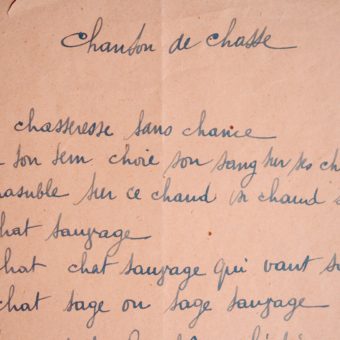 Chanson de chasse
chasseresse sans chance
son sein choie son sang sur ses ch
hasuble sur ce chaud si chaud s
hat sauvage
hat chat sauvage qui vaut s
chat sage ou sage sauvage